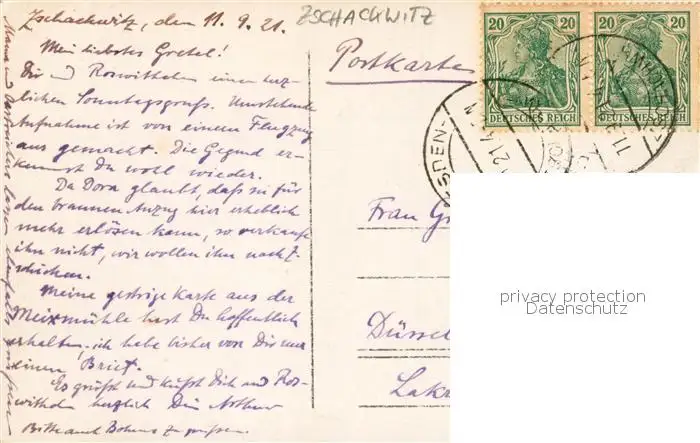 Zschachwitz, den 11. 9. 21.
ZSCHACKWITZ
Mein liebstes Gretel!
Dir und Roswithelein einen herz-
lichen Sonntagsgruss. Umstehende
Aufnahme ist von einem Flugzeug
aus gemacht. Die Gegend er-
kennst Du wohl wieder.
Da Dora glaubt, daß sie für
den braunen Anzug hier erheblich
mehr erlösen kann, so verkaufe
ihn nicht, wir wollen ihn nach Z.
schicken.
Meine gestrige Karte aus der
Meixmühle hast Du hoffentlich
erhalten, ich habe bisher von Dir nur
einen Brief.
Es grüßt und küßt Dich und Ros-
withelein herzlich Dein Arthur
Bitte auch Bohms zu grüssen.
Mama und
Postkarte
20 20 20 20
DEUTSCHES REICH DEUTSCHES REICH
Frau Gr
Düssel
Lak
privacy protection
Datenschutz